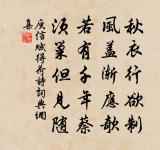 秋衣行欲制
風盖漸應欹
若有千年蔡
須巢但見随
庾信賦得荷詩詞典網
集